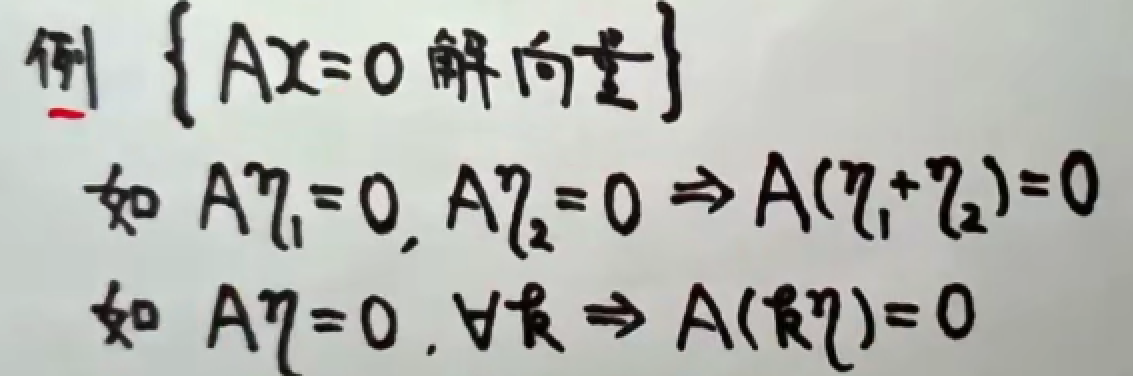 例 {Ax=0 解向量}
如 Aη₁=0, Aη₂=0 ⇒ A(η₁+η₂)=0
如 Aη=0. ∀k ⇒ A(kη)=0